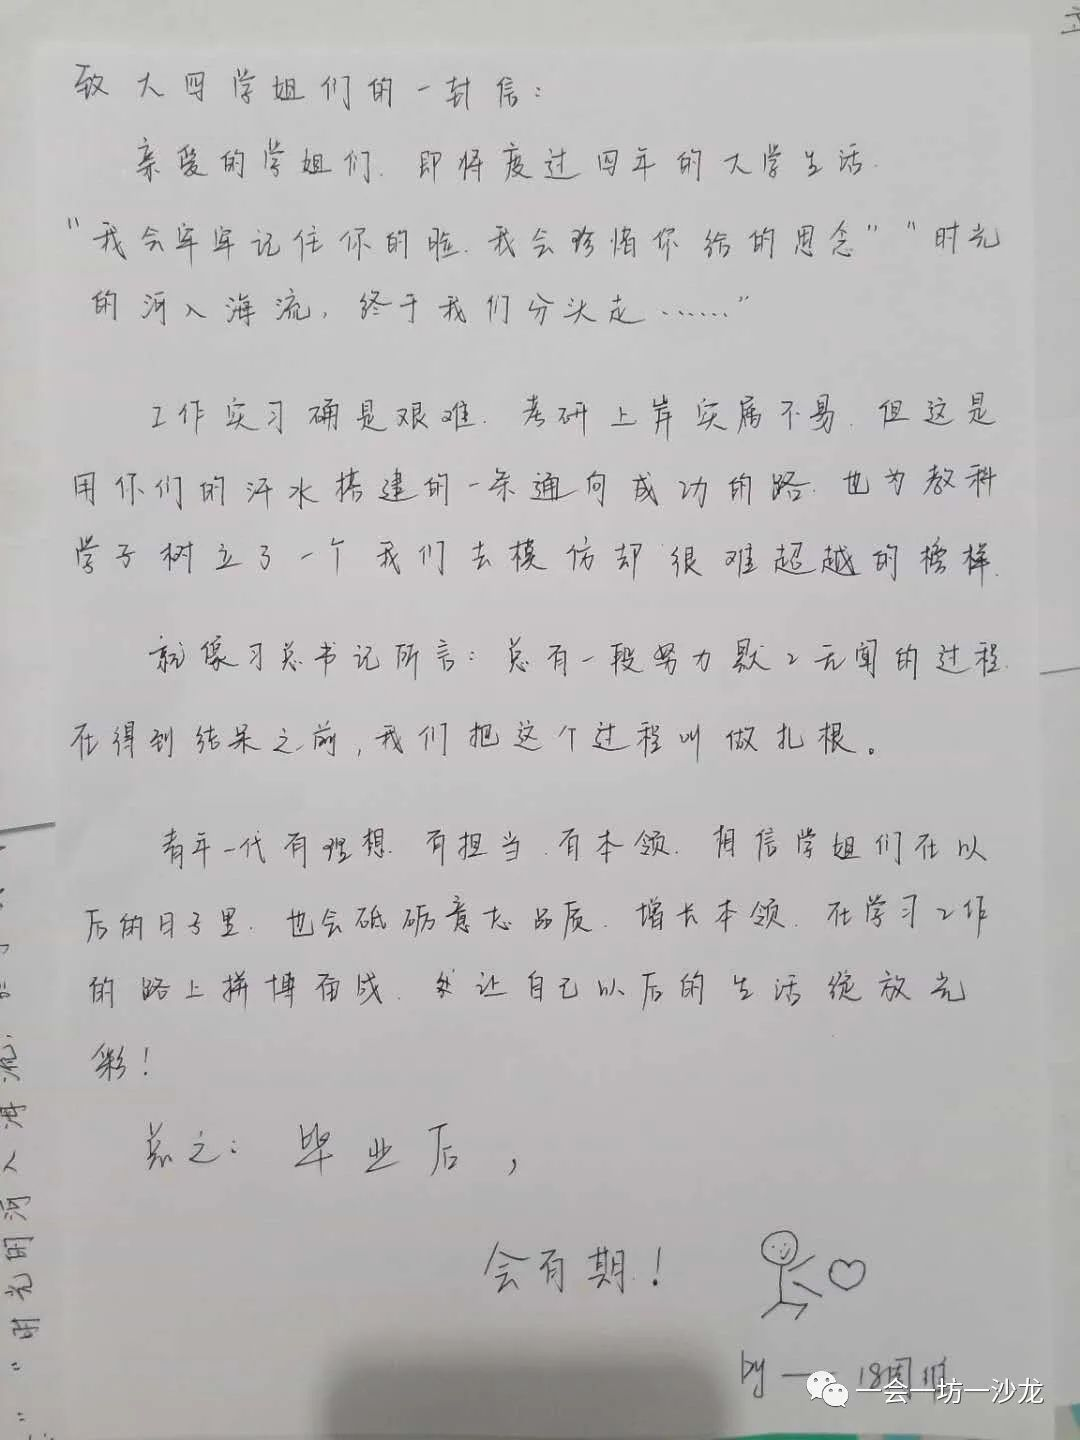 致大四学姐们的一封信：
亲爱的学姐们．即将度过四年的大学生活．
“我会牢牢记住你的脸．我会珍惜你给的思念”“时光
的河入海流，终于我们分头走……”
工作实习确是艰难．考研上岸实属不易．但这是
用你们的汗水搭建的一条通向成功的路．也为教科
学子树立了一个我们去模仿却很难超越的榜样．
就像习总书记所言：总有一段努力默々无闻的过程．
在得到结果之前，我们把这个过程叫做扎根。
青年一代有理想．有担当．有本领．相信学姐们在以
后的日子里．也会砥砺意志品质．增长本领．在学习工作
的路上拼搏而成．让自己以后的生活绽放光
彩！
总之：毕业后，
会有期！
by —— 18周
一会一坊一沙龙
“时光的河入海流，